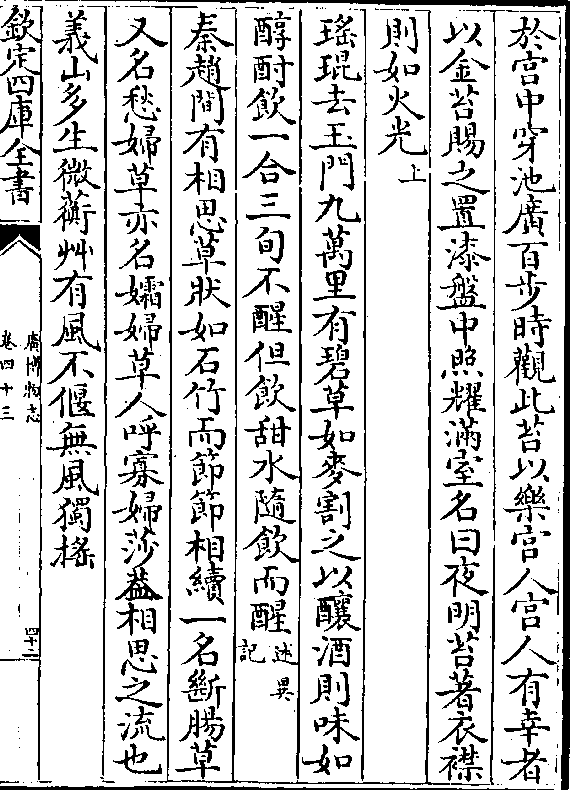 於宫中穿池廣百步時觀此苔以樂宫人宫人有幸者
以金苔賜之置漆盤中照耀滿室名曰夜明苔著衣襟
則如火光上
瑤琨去玉門九萬里有碧草如麥割之以釀酒則味如
醇酎飲一合三旬不醒但飲甜水隨飲而醒述異記
秦趙間有相思草狀如石竹而節節相續一名斷腸草
又名愁婦草亦名孀婦草人呼寡婦莎葢相思之流也
義山多生微蘅艸有風不偃無風獨榣
欽定四庫全書
廣博物志
卷四十三
四十二